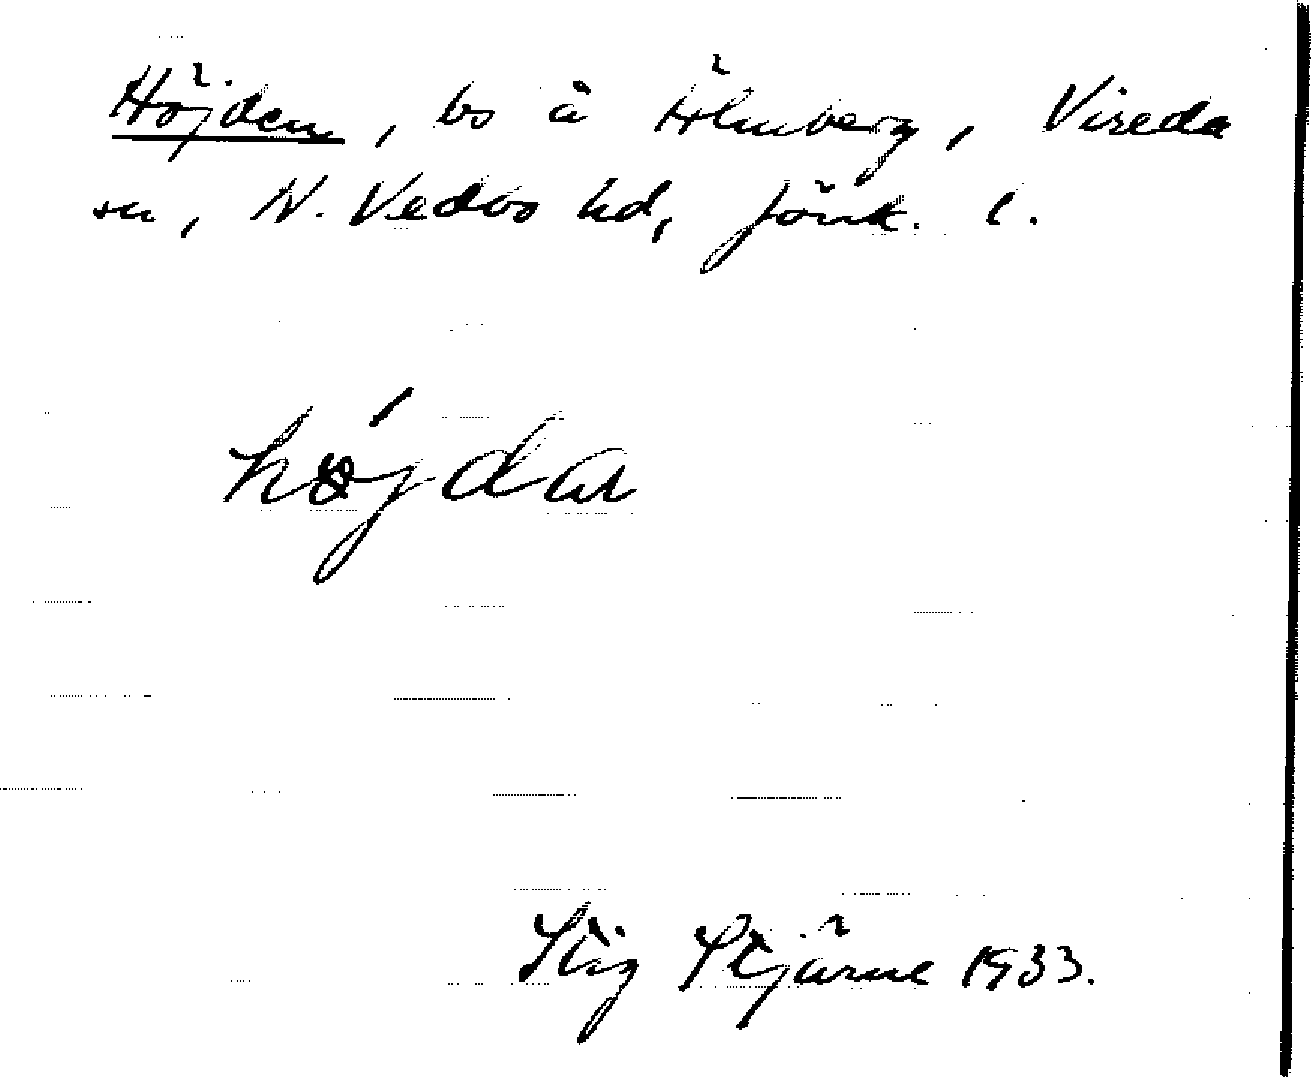 Höjden, bo å Älmberg, Vireda
sn, N. Vedbo hd, Jönk. l.
Stig Stjärne 1933.